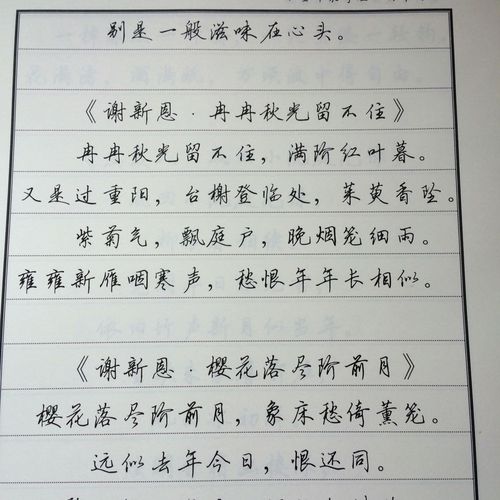 别是一般滋味在心头。
《谢新恩·冉冉秋光留不住》
冉冉秋光留不住，满阶红叶暮。
又是过重阳，台榭登临处，茱萸香坠。
紫菊气，飘庭户，晚烟笼细雨。
雍雍新雁咽寒声，愁恨年年长相似。
《谢新恩·樱花落尽阶前月》
樱花落尽阶前月，象床愁倚薰笼。
远似去年今日，恨还同。